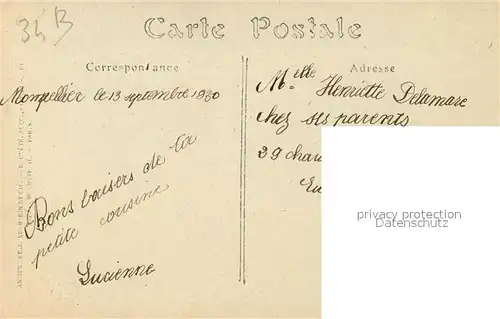 34 B
Carte Postale
Correspondance
Adresse
Monpellier le 13 septembre 1930
Bons baisers de la
petite cousine
Lucienne
Melle Henriette Delamare
chez ses parents
39
privacy protection
Datenschutz